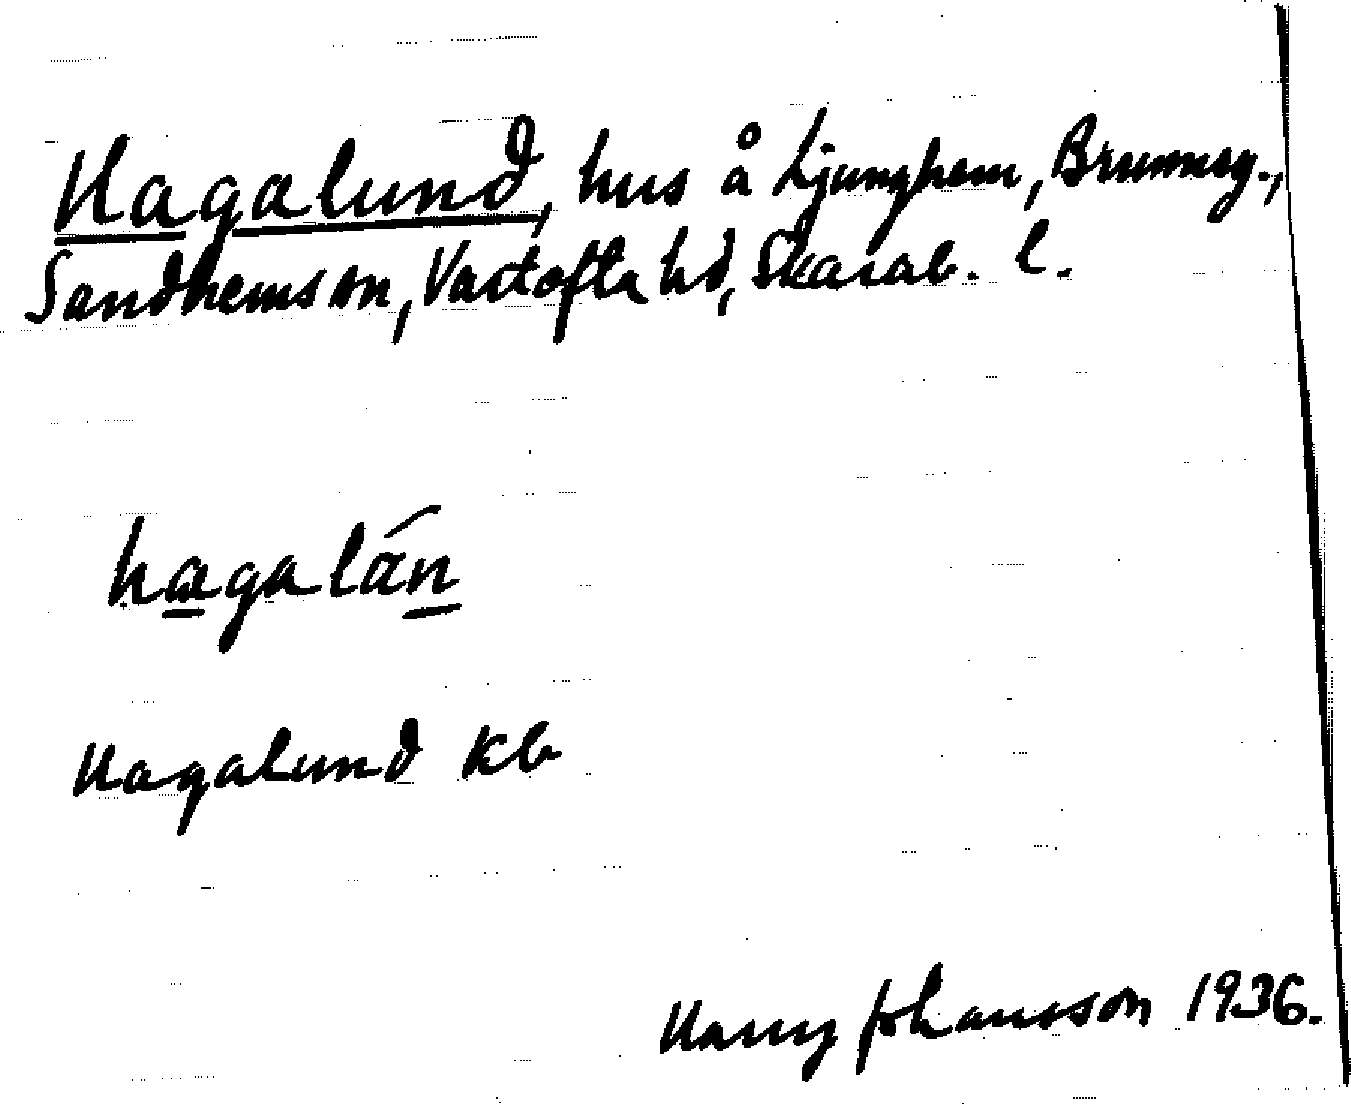 Hagalund, hus å Ljunghem, Brunnsg.,
Sandhems sn, Vartofta hd, Skarab. l.
hagalán
Hagalund kb
Harry Johansson 1936.